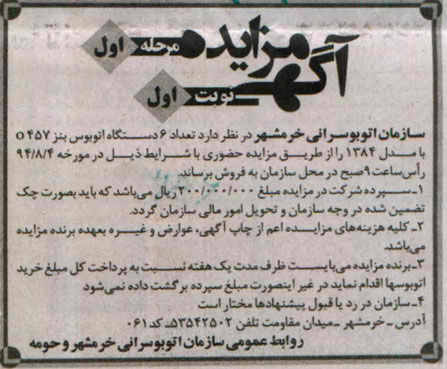 آگهی مزایده
مرحله اول
نوبت اول
سازمان اتوبوسرانی خرمشهر در نظر دارد تعداد ۶ دستگاه اتوبوس بنز ۴۵۷ o
با مدل ۱۳۸۴ را از طریق مزایده حضوری با شرایط ذیل در مورخه ۹۴/۸/۴
رأس ساعت ۹ صبح در محل سازمان به فروش برساند.
۱- سپرده شرکت در مزایده مبلغ ۲۰۰/۰۰۰/۰۰۰ ریال می‌باشد که باید بصورت چک
تضمین شده در وجه سازمان و تحویل امور مالی سازمان گردد.
۲- کلیه هزینه‌های مزایده اعم از چاپ آگهی، عوارض و غیره بعهده برنده مزایده
می‌باشد.
۳- برنده مزایده می‌بایست ظرف مدت یک هفته نسبت به پرداخت کل مبلغ خرید
اتوبوسها اقدام نماید در غیر اینصورت مبلغ سپرده برگشت داده نمی‌شود
۴- سازمان در رد یا قبول پیشنهادها مختار است
آدرس - خرمشهر - میدان مقاومت تلفن ۵۳۵۴۲۵۰۲ کد ۰۶۱
روابط عمومی سازمان اتوبوسرانی خرمشهر و حومه